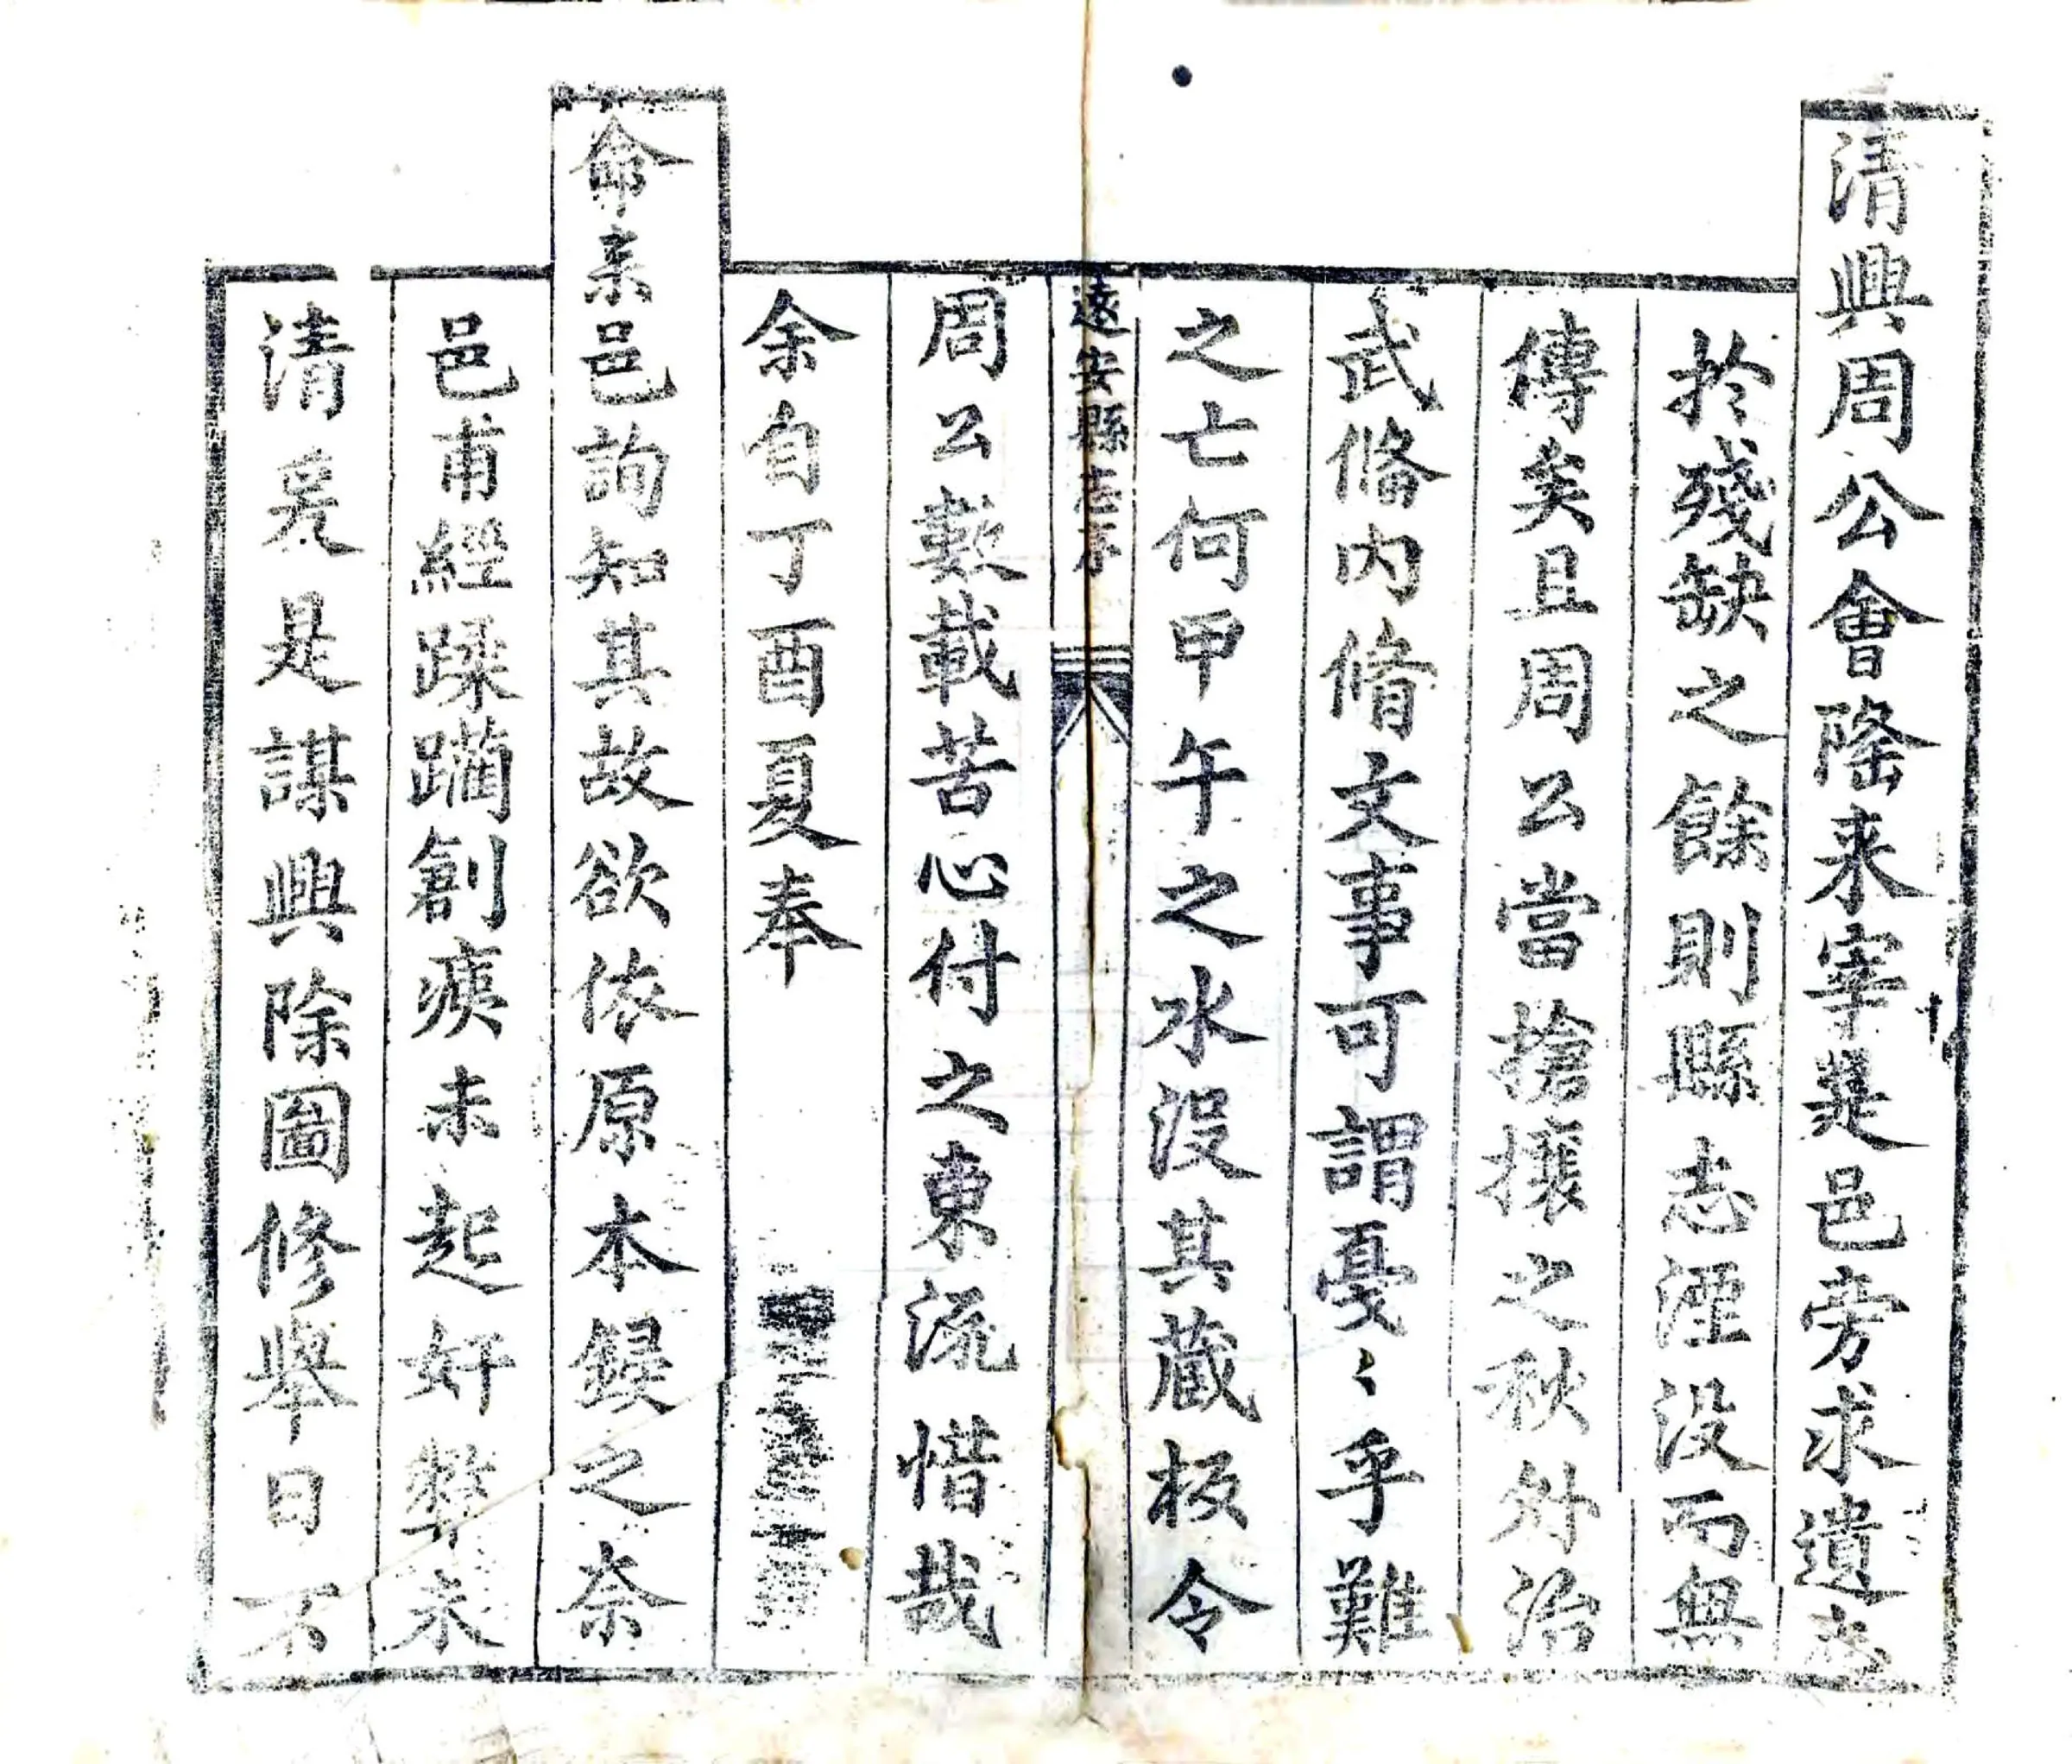 清興周公會隆来宰是邑旁求遺志
扵殘缺之餘則縣志湮没而無
傳矣且周公當搶攘之秋外治
武脩内脩文事可謂憂〻乎難
之亡何甲午之水没其藏板令
遠安縣志序
周公數載苦心付之東流惜哉
余自丁酉夏奉
命来邑詢知其故欲依原本鋟之奈
邑甫經蹂躪創痍未起奸弊未
清爰是謀興除圖修舉日不